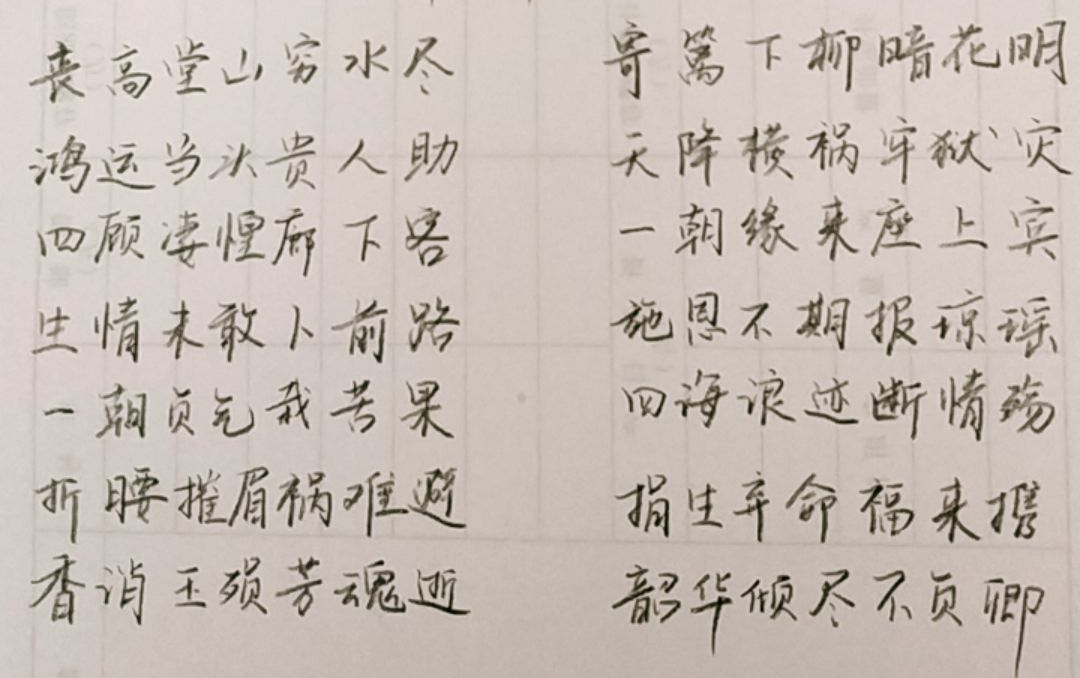 丧高堂山穷水尽 寄篱下柳暗花明
鸿运当头贵人助 天降横祸牢狱灾
四顾凄惶廊下客 一朝缘来座上宾
生情未敢卜前路 施恩不期报琼瑶
一朝负气栽苦果 四海浪迹断情殇
折腰摧眉祸难避 捐生弃命福来携
香消玉殒芳魂逝 韶华倾尽不负卿